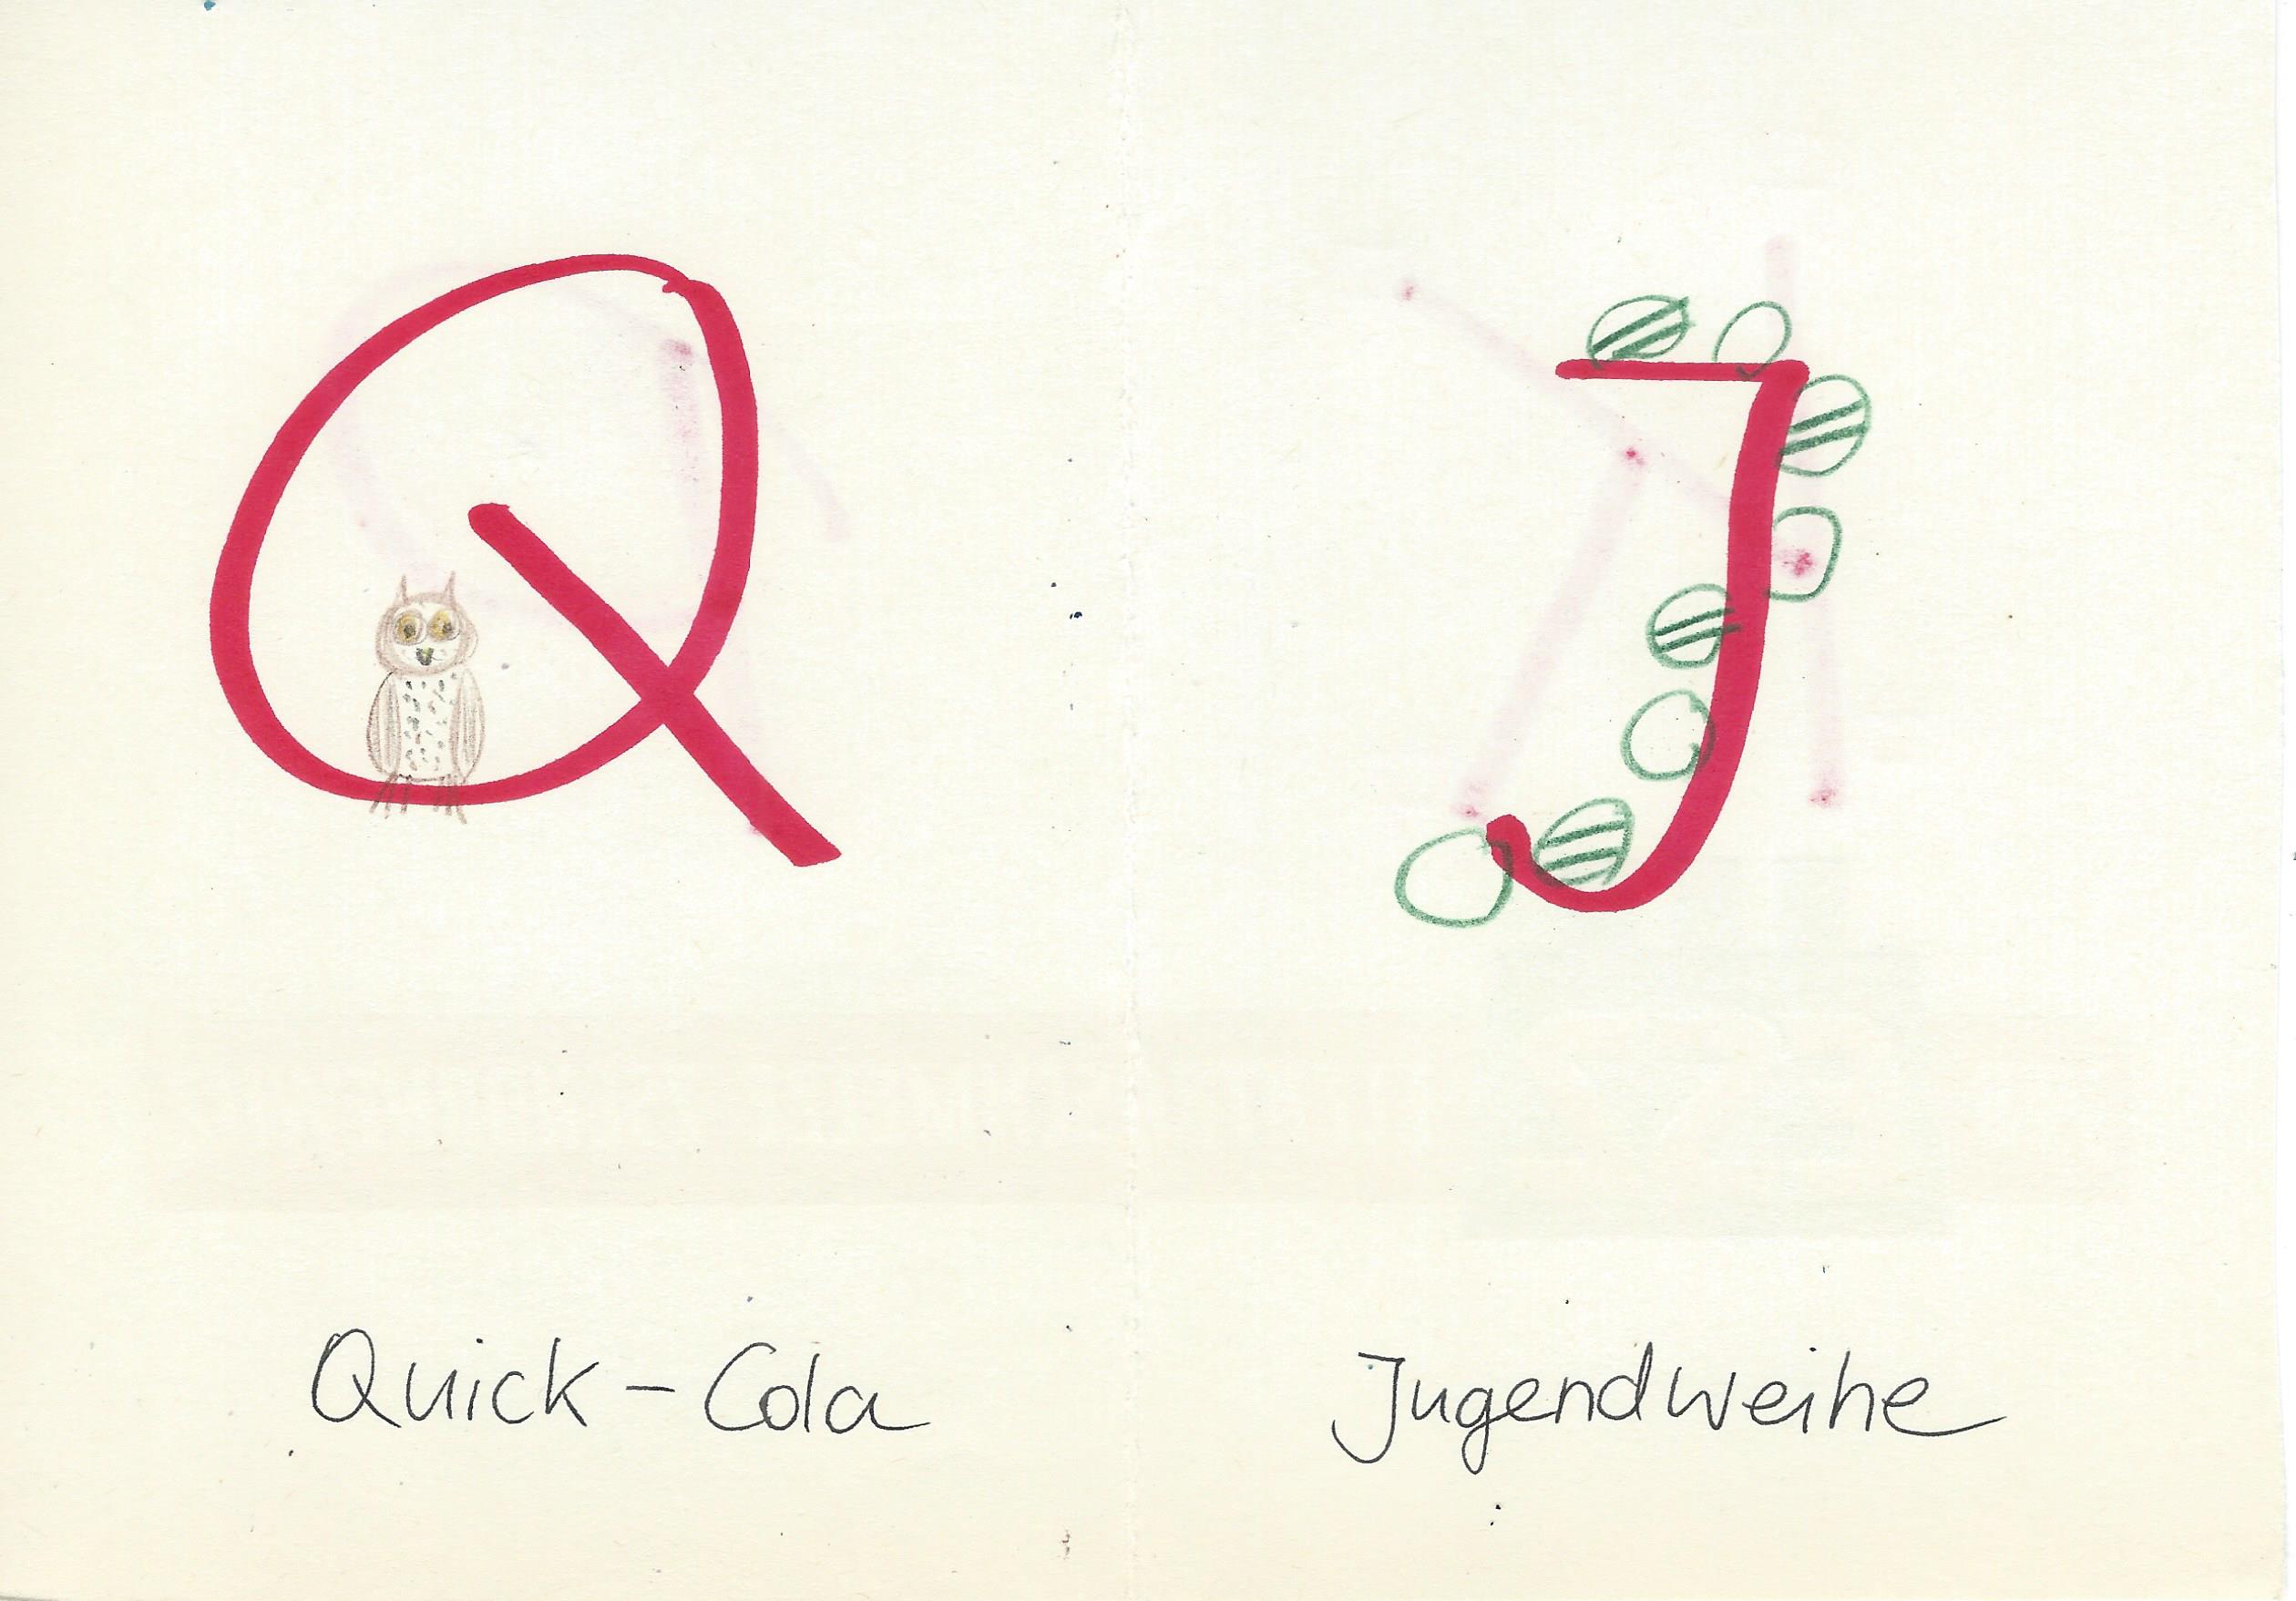 Q
J
Quick - Cola
Jugendweihe